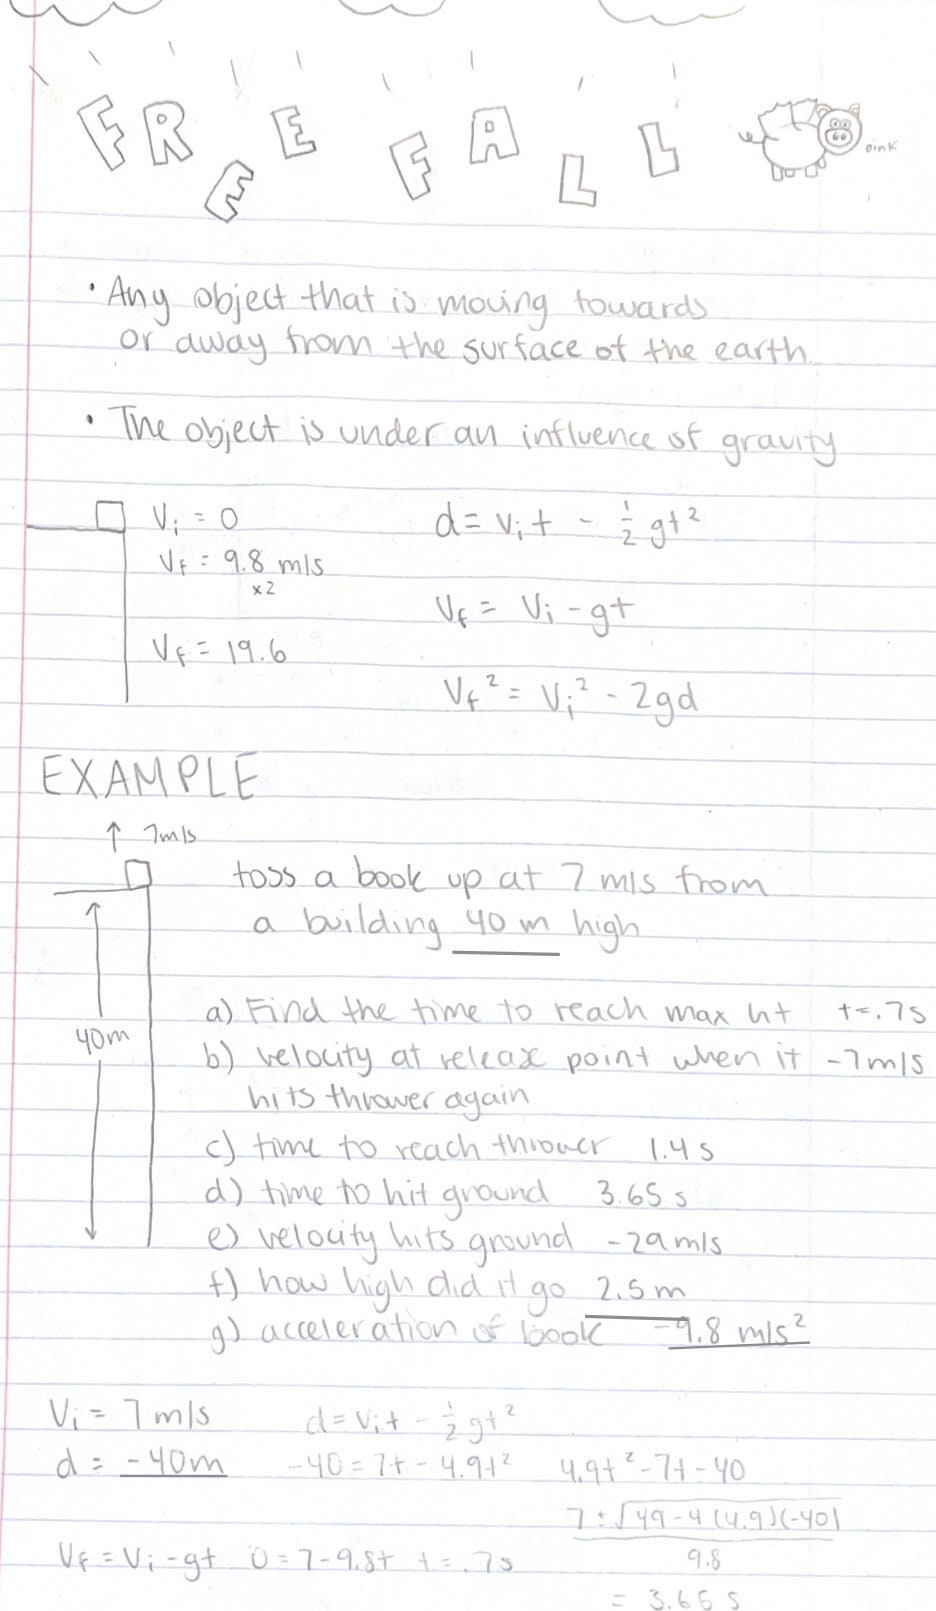 FREE FALL
oink
• Any object that is moving towards
or away from the surface of the earth
• The object is under an influence of gravity
Vi = 0
d = vit - 1/2 gt²
Vf = 9.8 m/s
x2
Vf = Vi - gt
Vf = 19.6
Vf² = Vi² - 2gd
EXAMPLE
↑ 7m/s
toss a book up at 7 m/s from
a building 40 m high
40m
a) Find the time to reach max ht t=.7s
b) velocity at release point when it -7m/s
hits thrower again
c) time to reach thrower 1.4 s
d) time to hit ground 3.65 s
e) velocity hits ground -29m/s
f) how high did it go 2.5 m
g) acceleration of book -9.8 m/s²
Vi = 7 m/s
d = vit - 1/2 gt²
d = -40m
-40 = 7t - 4.9t²
4.9t² - 7t - 40
7 ± √49 - 4 (4.9)(-40)
9.8
Vf = Vi - gt 0 = 7 - 9.8t t = .7s
= 3.65 s